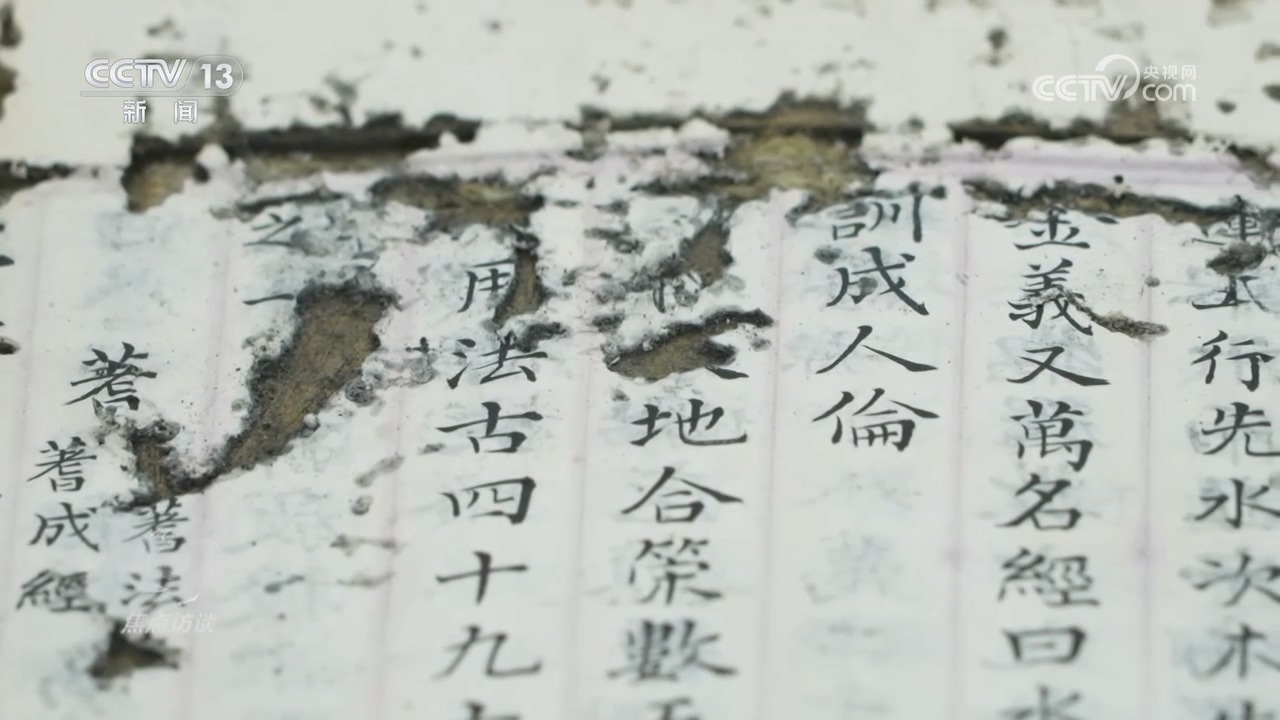 CCTV 13
新闻
CCTV.com
央视网
行先水次木
金義又萬名經曰
訓成人倫
地合策數
用法古四十九
之一
蓍
蓍法
蓍成經
焦点访谈